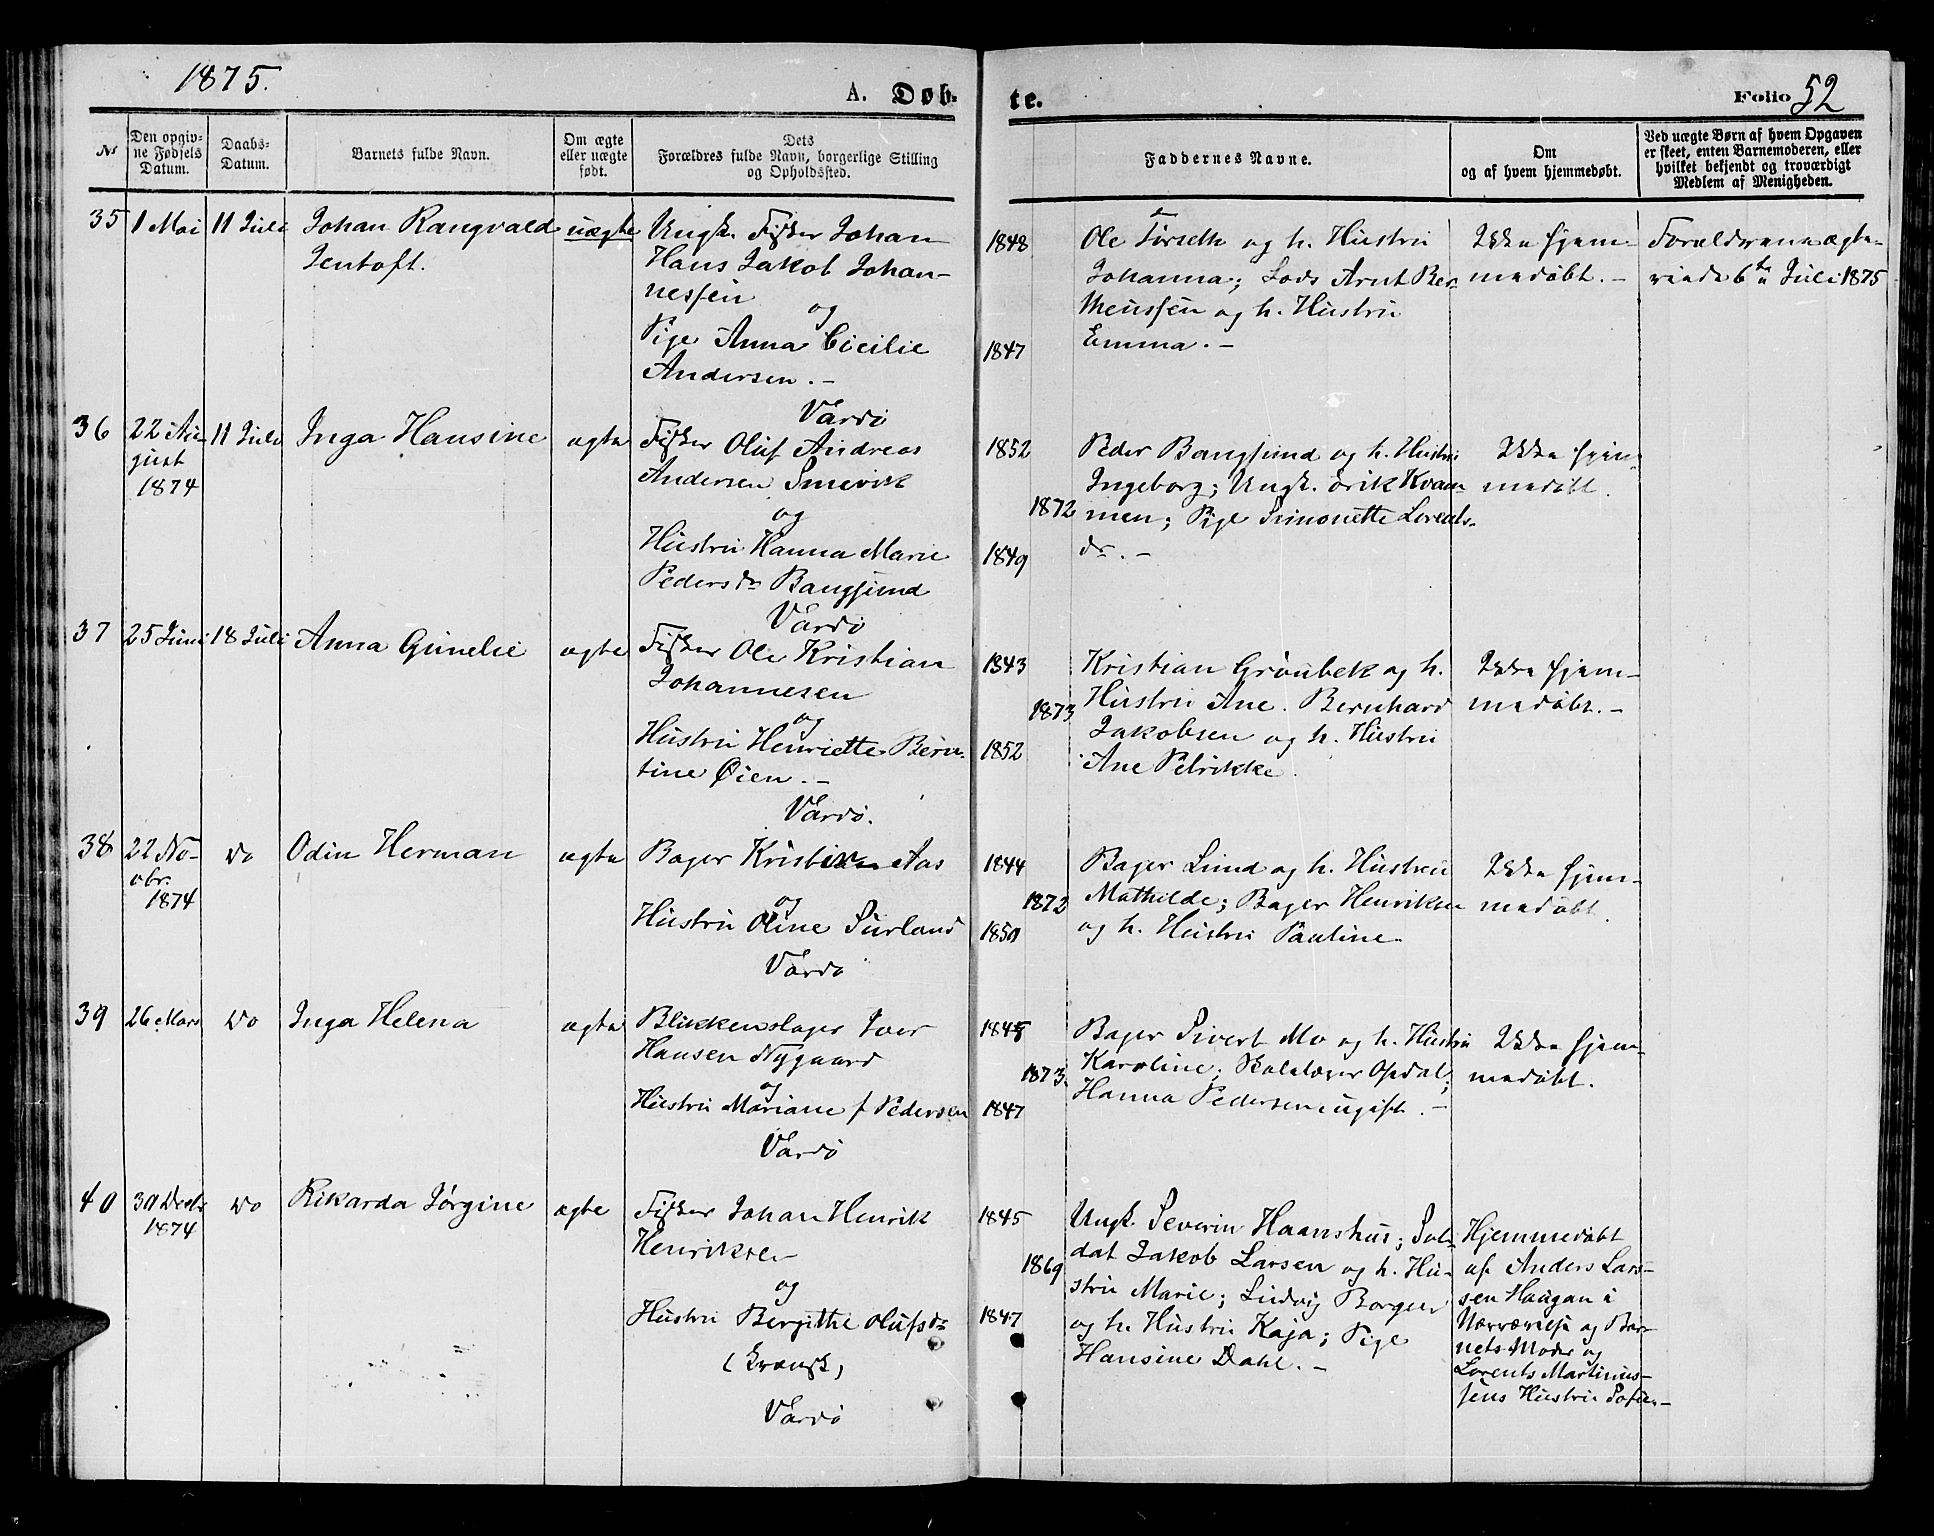 1875.
A. Døb-
te.
Folio 52
No
Den opgiv-
ne Fødsels
Datum.
Daabs-
Datum.
Barnets fulde Navn.
Om ægte
eller uægte
født.
Dets
Forældres fulde Navn, borgerlige Stilling
og Opholdssted.
Faddernes Navne.
Om
og af hvem hjemmedøbt.
Ved uægte Børn af hvem Opgaven
er skeet, enten Barnemoderen, eller
hvilket bekjendt og troværdigt
Medlem af Menigheden.
35
1 Mai
11 Juli
Johan Rangvald
Jentoft.
uægte
Ungk. Fisker Johan
Hans Jakob Johan-
nessen
og
Pige Anna Cicilie
Andersen. -
Vardø
1848
1847
Ole Torseth og h. Hustru
Johanna; Lods Arnt Ber-
theussen og h. Hustru
Emma. -
Ikke hjem-
medøbt. -
Forældrene ægte-
viede 6te Juli 1875
36
22 Au-
gust
1874
11 Juli
Inga Hansine
ægte
Fisker Oluf Andreas
Andersen Snevik
og
Hustru Hanna Marie
Pedersdr Bangsund
Vardø
1852
1872
1849
Peder Bangsund og h. Hustru
Ingeborg; Ungk. Erik Kvam-
men; Pige Simonette Lorents-
dr. -
Ikke hjem-
medøbt.
37
25 Juni
18 Juli
Anna Gunelie
ægte
Fisker Ole Kristian
Johannesen
og
Hustru Henriette Bern-
tine Øien. -
Vardø.
1843
1873
1852
Kristian Grønbek og h.
Hustru Ane. Bernhard
Jakobsen og h. Hustru
Ane Petrikke.
Ikke hjem-
medøbt. -
38
22 No-
vbr.
1874
do
Odin Herman
ægte
Bager Kristian Aas
og
Hustru Oline Surland
Vardø
1844
1872
1850
Bager Lund og h. Hustru
Mathilde; Bager Henriksen
og h. Hustru Pauline.
Ikke hjem-
medøbt.
39
26 Mars
do
Inga Helena
ægte
Blikkenslager Iver
Hansen Nygaard
og
Hustru Mariane f Pedersen
Vardø
1845
1873.
1847
Bager Sivert Mo og h. Hustru
Karoline; Skolelærer Opdal;
Hanna Pedersen ugift. -
Ikke hjem-
medøbt.
40
30 Decbr
1874
do
Rikarda Jørgine
ægte
Fisker Johan Henrik
Henriksen
og
Hustru Bergitthe Olufsdr
(kvænsk)
Vardø
1845
1869
1847
Ungk. Severin Haanshus; Sol-
dat Jakob Larsen og h. Hu-
stru Marie; Ludvig Borgen
og h. Hustru Kaja; Pige
Hansine Dahl. -
Hjemmedøbt
af Anders Lars-
sen Haugan i
Nærværelse og Bar-
nets Moder og
Lorents Martinus-
sens Hustru Sofie. -